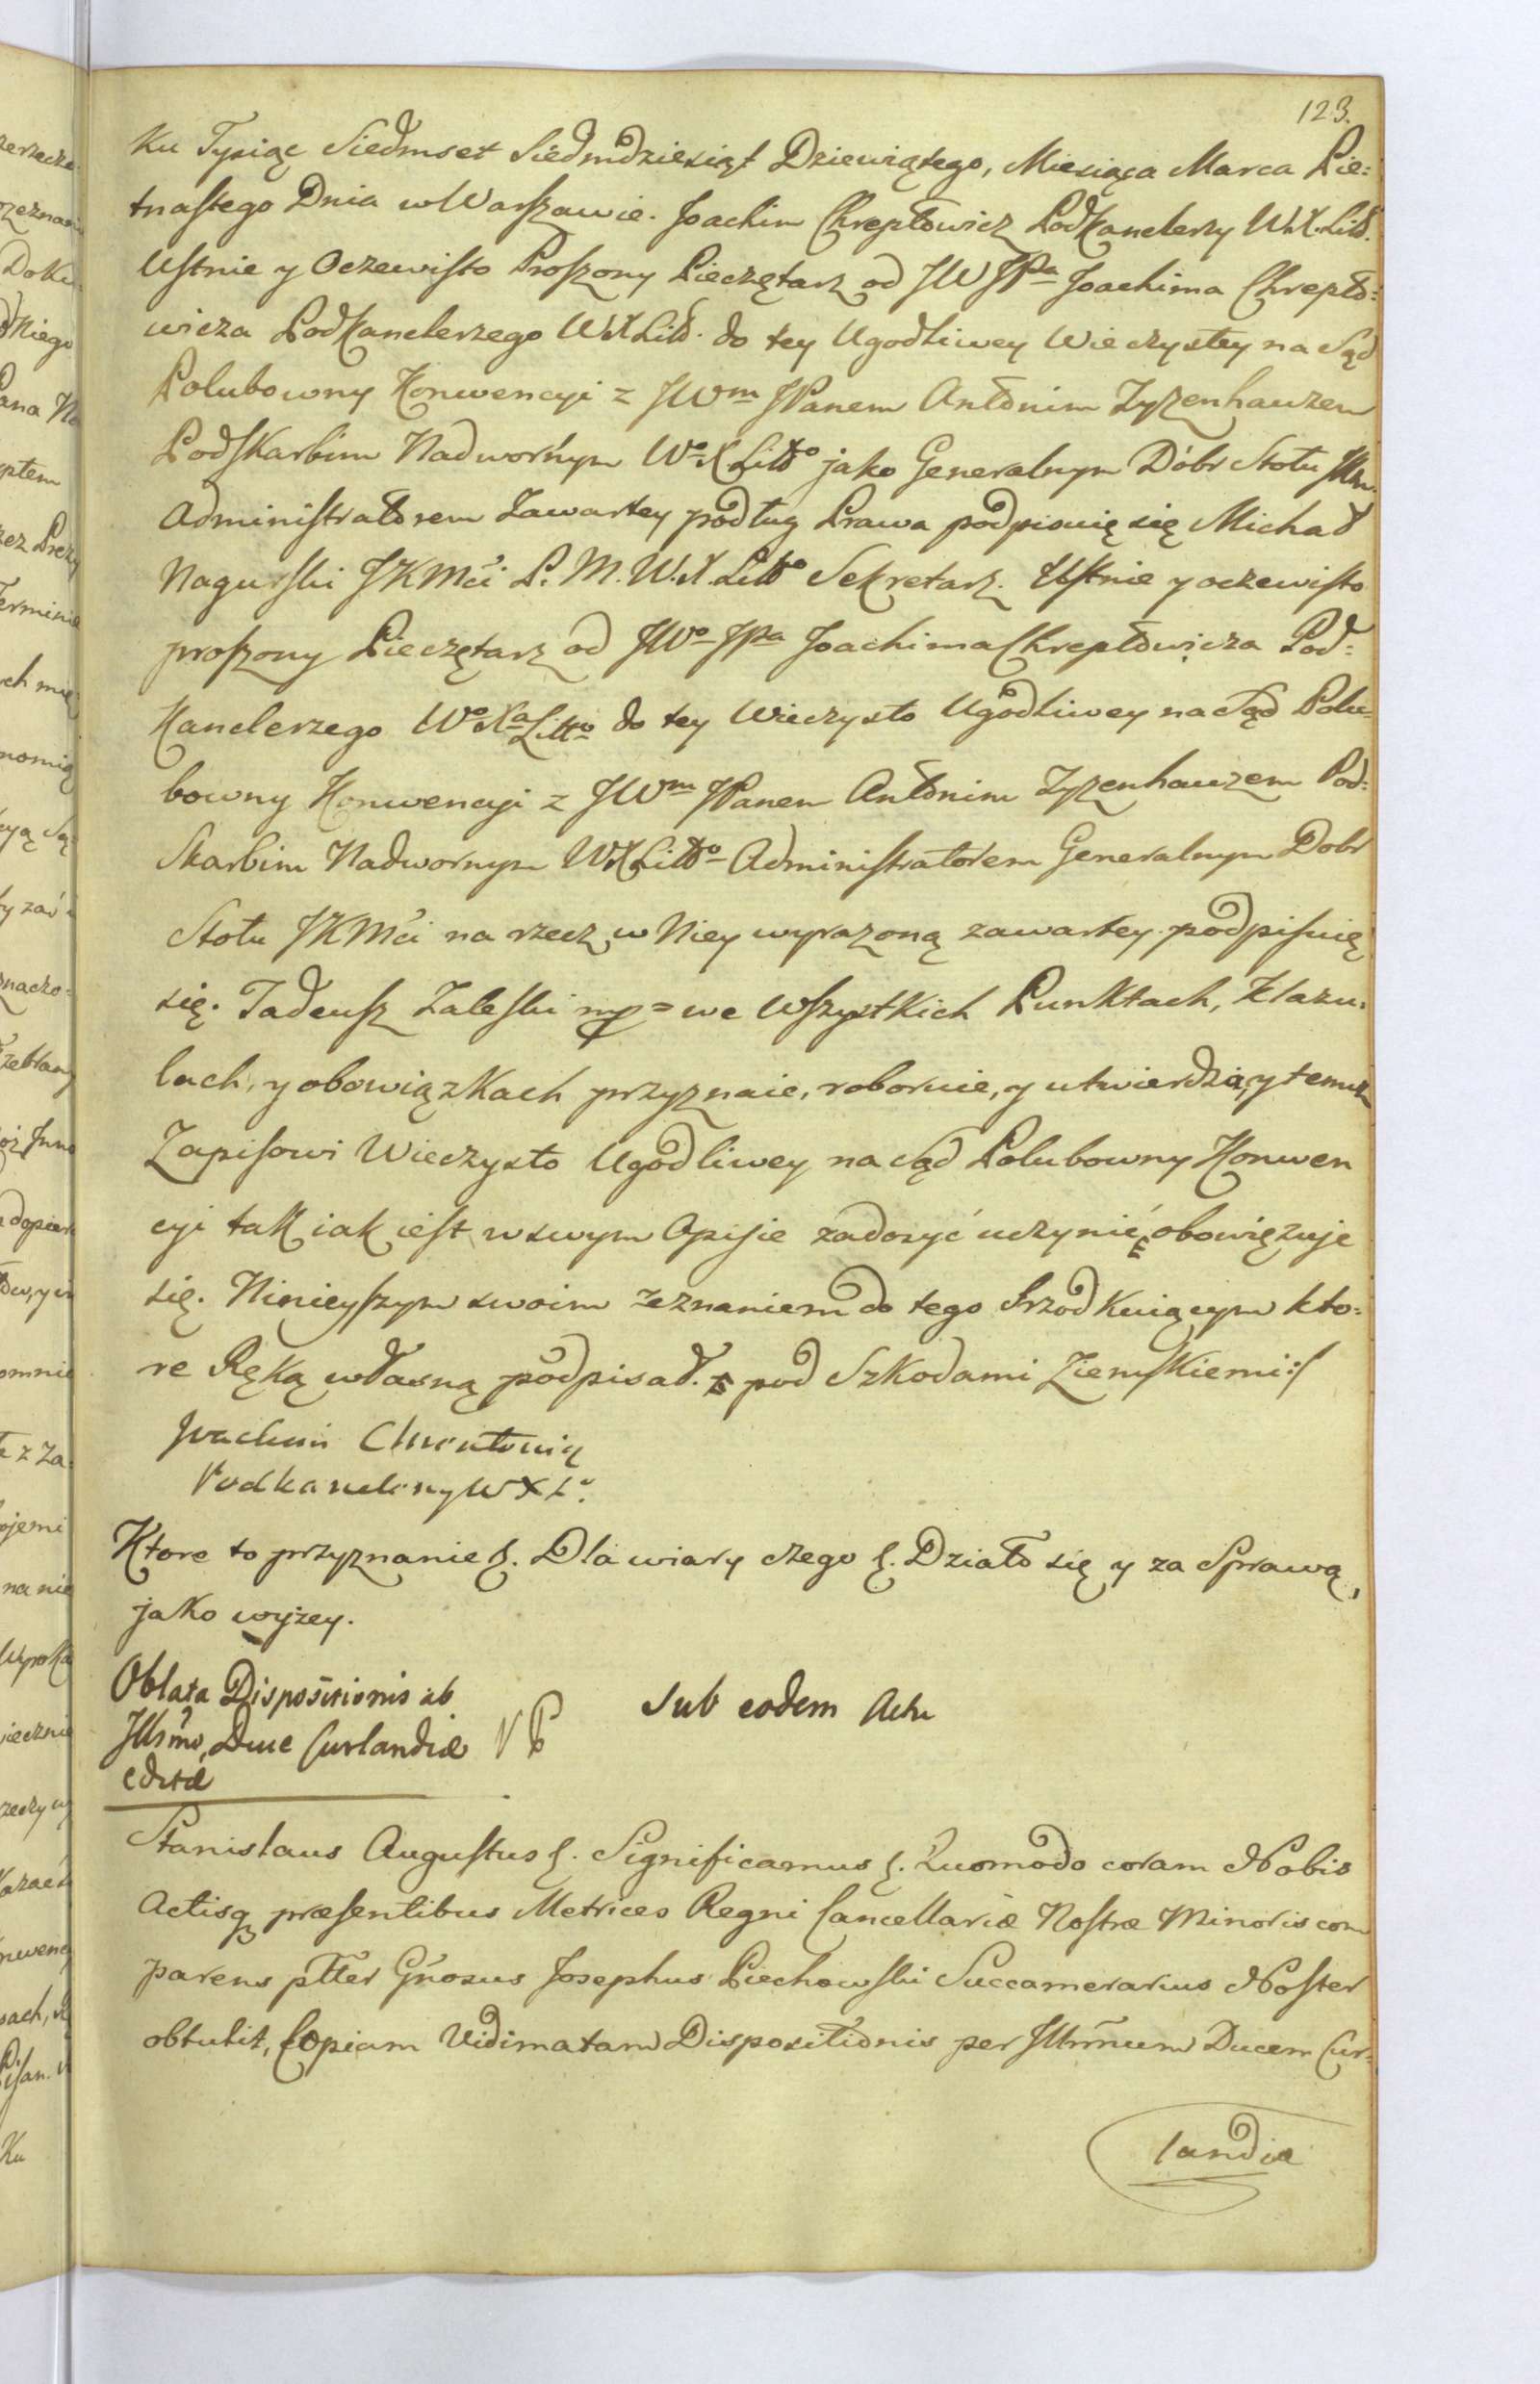 123.
Ku Tysiąc Siedmset Siedmdziesiąt Dziewiątego, Miesiąca Marca Pie=
tnastego Dnia w Warszawie. Joachim Chreptowicz PodKanclerzy W.X.Litt.
Ustnie y Oczewisto Proszony Pieczętarz od JW JPa Joachima Chrepto=
wicza PodKanclerzego WXLitt. do tey Ugodliwey Wieczystey na Sąd
Polubowny Konwencyi z JWm JPanem Antonim Tyzenhauzem
PodSkarbim Nadwornym Wo X Litto jako Generalnym Dóbr Stołu
Administratorem Zawartey podług Prawa podpisuię się Michał
Nagurski JKMći P. M. W.X. Litto Sekretarz. Ustnie y oczewisto
proszony Pieczętarz od JWo JPa Joachima Chreptowicza Pod=
Kanclerzego Wo Xa Litto do tey Wieczysto Ugodliwey na Sąd Polu=
bowny Konwencyi z JWm JPanem Antonim Tyzenhauzem Pod=
Skarbim Nadwornym WXLitto Administratorem Generalnym Dobr
Stołu JKMći na rzecz w Niey wyrazoną zawartey podpisuię
się. Tadeusz Zaleski mp = we Wszystkich Punktach, Klazu=
lach, y obowiązkach przyznaie, roboruie, y utwierdza, y temuz
Zapisowi Wieczysto Ugodliwey na Sąd Polubowny Konwen
cyi tak iak iest w swym Opisie zadosyć uczynić obowięzuje
się. Ninieyszym swoim zeznaniem do tego Srzodkuiącym kto=
re Ręką własną podpisał. pod Szkodami Ziemskiemi:/
Joachim Chreptowicz
Podkanclerzy W X Lo.
Ktore to przyznanie &. Dla wiary czego &. Działo się y za Sprawą,
jako wyzey.
Oblata Dispositionis ab
Illsmo Duce Curlandiæ
editæ
Sub eodem Actu
Stanislaus Augustus &. Significamus &. Quomodo coram Nobis
Actisq præsentibus Metrices Regni Cancellariæ Nostræ Minoris com
parens pltter Gnosus Josephus Piechowski Succamerarius Noster
obtulit, Copiam Vidimatam Dispositionis per Illmum Ducem Cur=
landiæ